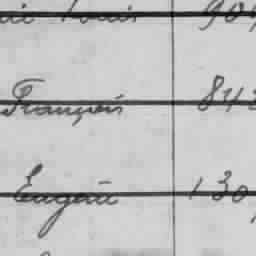 Louis 904
François 843
Eugène 130